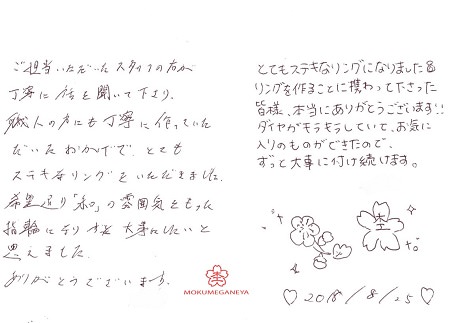 ご担当いただいたスタッフの方が
丁寧に話を聞いて下さり、
職人の方にも丁寧に作っていた
だいたおかげで、とても
ステキなリングをいただきました。
希望通り「和」の雰囲気をもった
指輪になり ずっと大事にしたいと
思えました。
ありがとうございます。
MOKUMEGANEYA
とてもステキなリングになりました
リングを作ることに携わって下さった
皆様、本当にありがとうございます!!
ダイヤがキラキラしていて、お気に
入りのものができたので、
ずっと大事に付け続けます。
♡ 2018/8/25 ♡